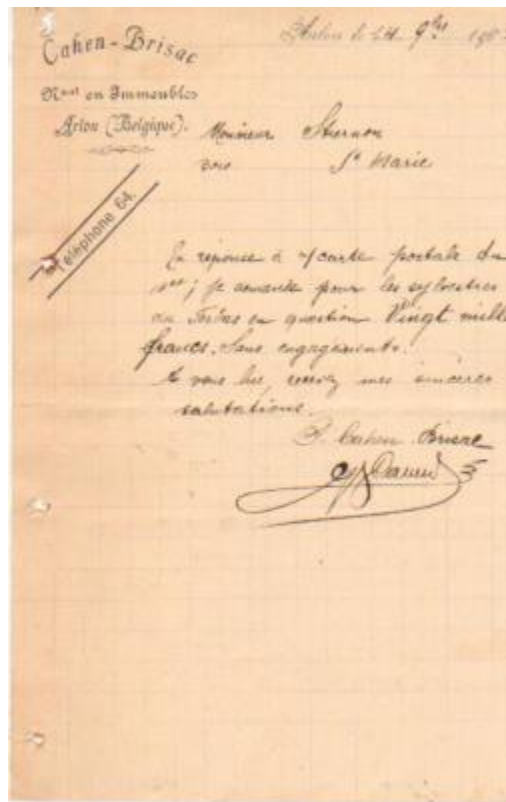 Cahen-Brisac
N.ant en Immeubles
Arlon (Belgique).
Téléphone 64.
Arlon le 24 9bre
Monsieur
Ste Marie
En réponse à v/carte postale du
je demande pour les sylvestres
du en question Vingt mille
francs. Sans engagements.
A vous lire, recevez mes sincères
salutations.
P. Cahen Brisac